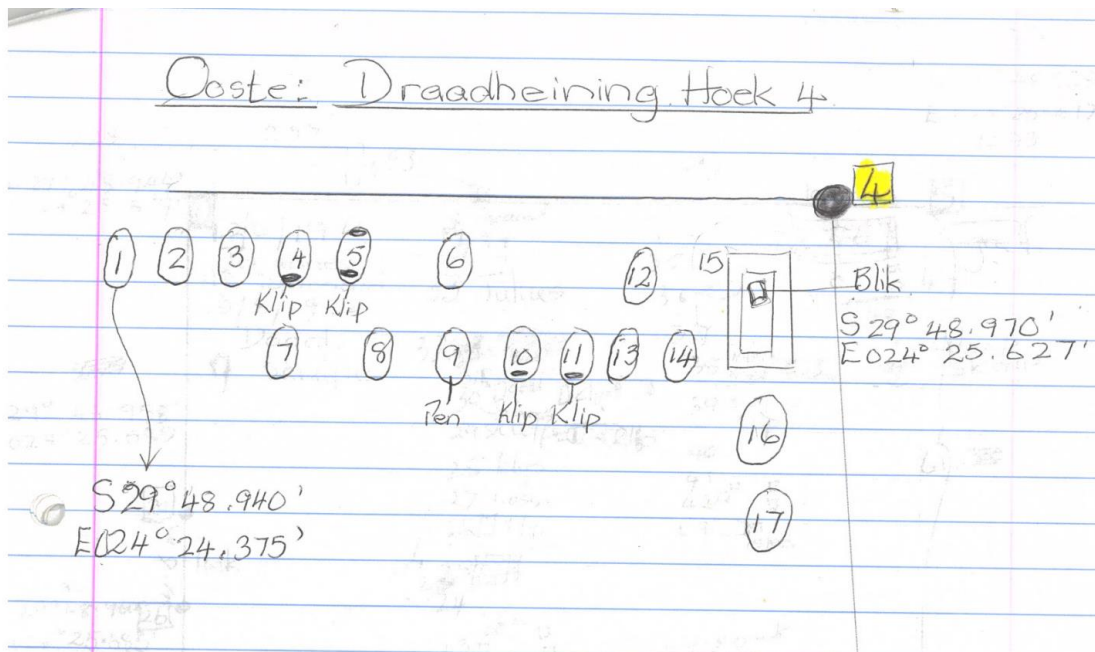 Ooste: Draadheining Hoek 4
4
1 2 3 4 5 6 12 15
Klip Klip
Blik
S29° 48.970'
E024° 25.627'
7 8 9 10 11 13 14
Pen Klip Klip
16
17
S29° 48.940'
E024° 24.375'